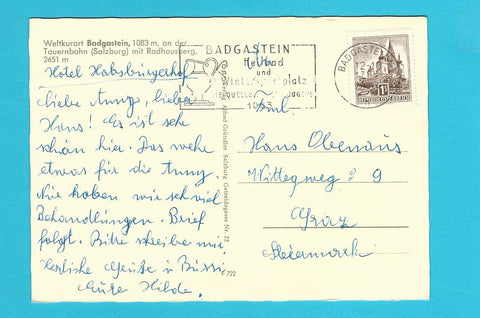 Weltkurort Badgastein, 1083 m, an der
Tauernbahn (Salzburg) mit Radhausberg,
2651 m
Hotel Habsburgerhof
Liebe Anny, lieber
Hans! Es ist sehr
schön hier. Das wäre
etwas für die Anny.
Wir haben wir seh viel
Behandlungen. Brief
folgt. Bitte schreibe mir.
Herzliche Grüße u Bussi
Eure Hilde.
BADGASTEIN
Heilbad
und
Wintersportplatz
BADGASTEIN
12.
Fam.
Hans Obenaus
Wittegweg 9
Graz
Steiermark
Alfred Gründler Salzburg Getreidegasse Nr. 22
F 722